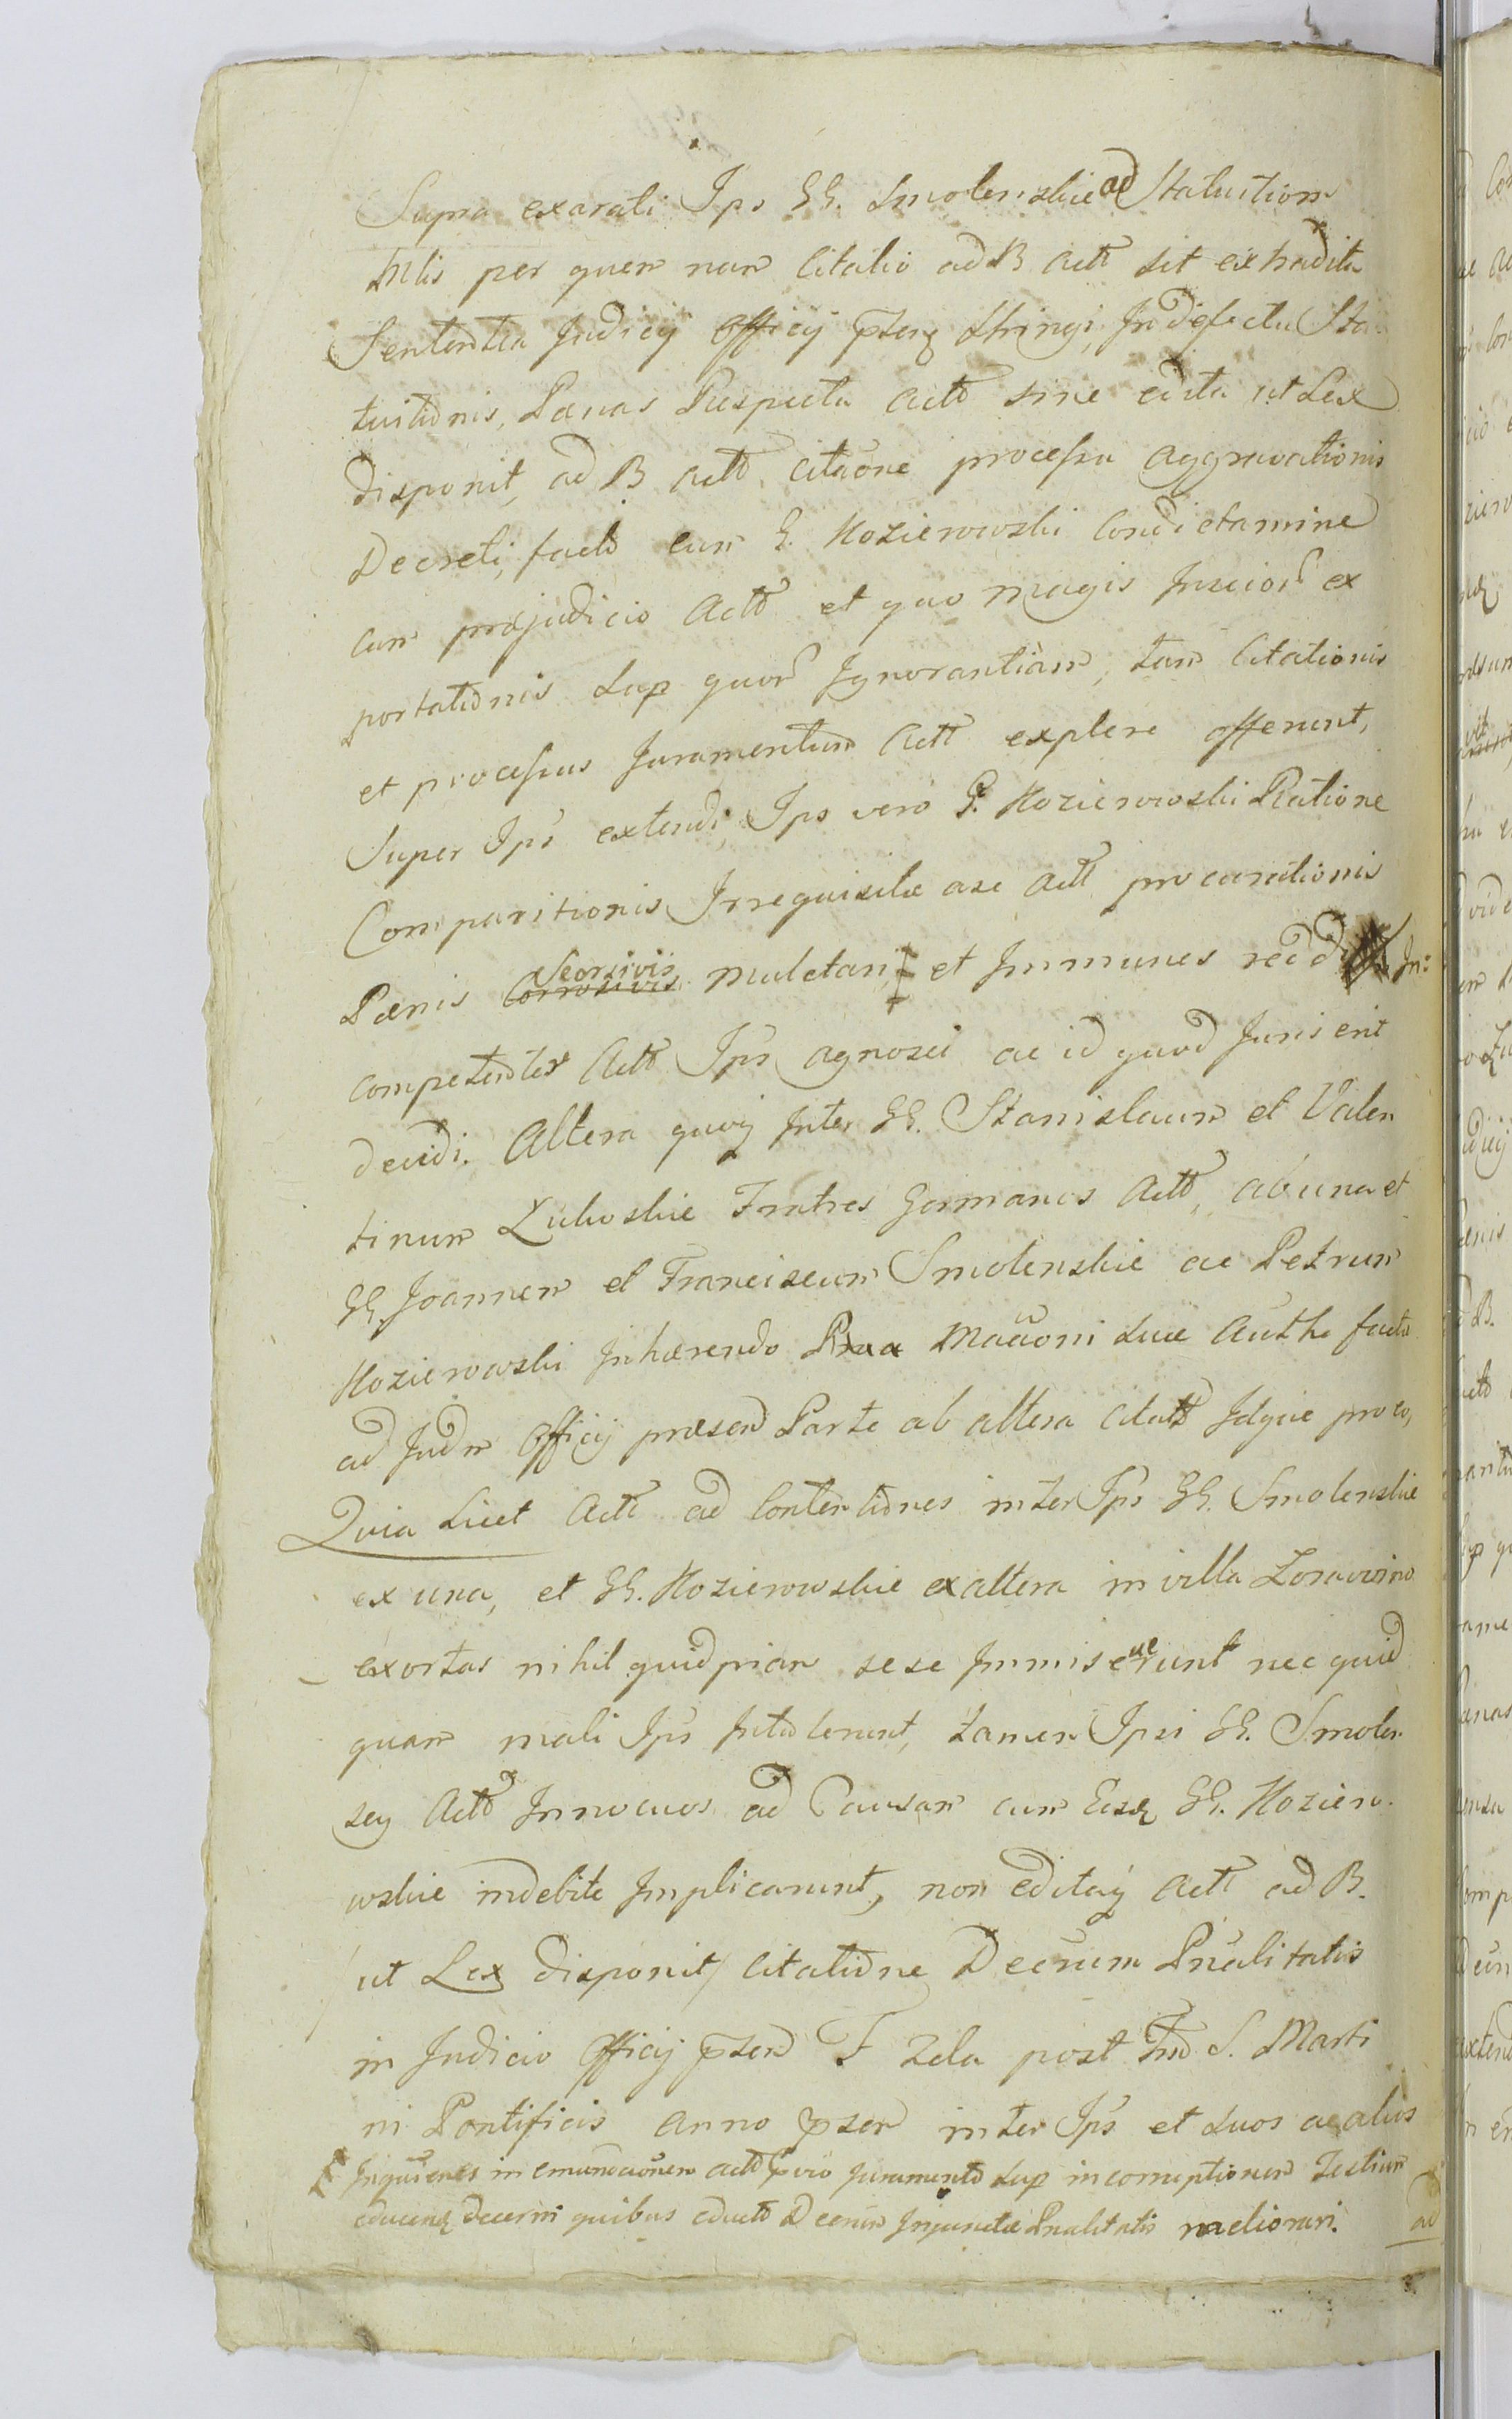 Supra exarati Ips GG. Smolenskie ad Statuition
Mlis per quem nam Citatio ad B Actt sit extradita
Sententia Judicij Officij stringi, In defectu Sta:
tuitionis, Pænas Respectu Actt sine edita ut Lex
disponit, ad B Actt citãone processu aggravationis
Decreti, facto cum G. Kozierowski Condictamine
cum præjudicio Actt et quo magis Insciorũ ex
portationis sup quorũ Ignorantiam, tam Citationis
et processus Juramentum Actt explere offerunt,
Super Ips extendi, Ips vero G. Kozierowski Ratione
Comparitionis Irrequisitæ ase Actt procurationis
Pænis Seorsivis mulctari, et Immunes In:
competenter Actt Ips agnosci ac id quod Juris erit
decidi. Altera quoq Inter GG. Stanislaum et Valen
tinum Zulwoskie Fratres Germanos Actt, ab una et
GG. Joannem et Franciscum Smolenskie ac Petrum
Kozierowski Inhærendo mãõni suæ Auth facta
ad Judm Officij præsen Parte ab altera Citatt Idque pro eo,
Quia Licet Actt ad Contentiones inter Ips GG. Smolenskie
ex una, et GG. Kozierowskie ex altera in villa Zorawino
exortas nihil quidpiam sese Immiscuerunt nec quid
quam mali Ips Intulerunt, tamen Ipsi GG. Smolen
scy Actt Innocuos ad Causam cum Eisq GG. Koziero.
wskie indebite Implicarunt, non editaq Actt ad B.
ut Lex disponit, Citatione Decrum Pnalitatis
in Judicio Officij F 2da post Fm S. Marti
ni Pontificis Anno inter Ips et suos ac alios
in emundãonem Actt Juramento sup incorruptionem Testium
decerni quibus educto Decrum Injunctæ Pnalitatis meliorari. ad